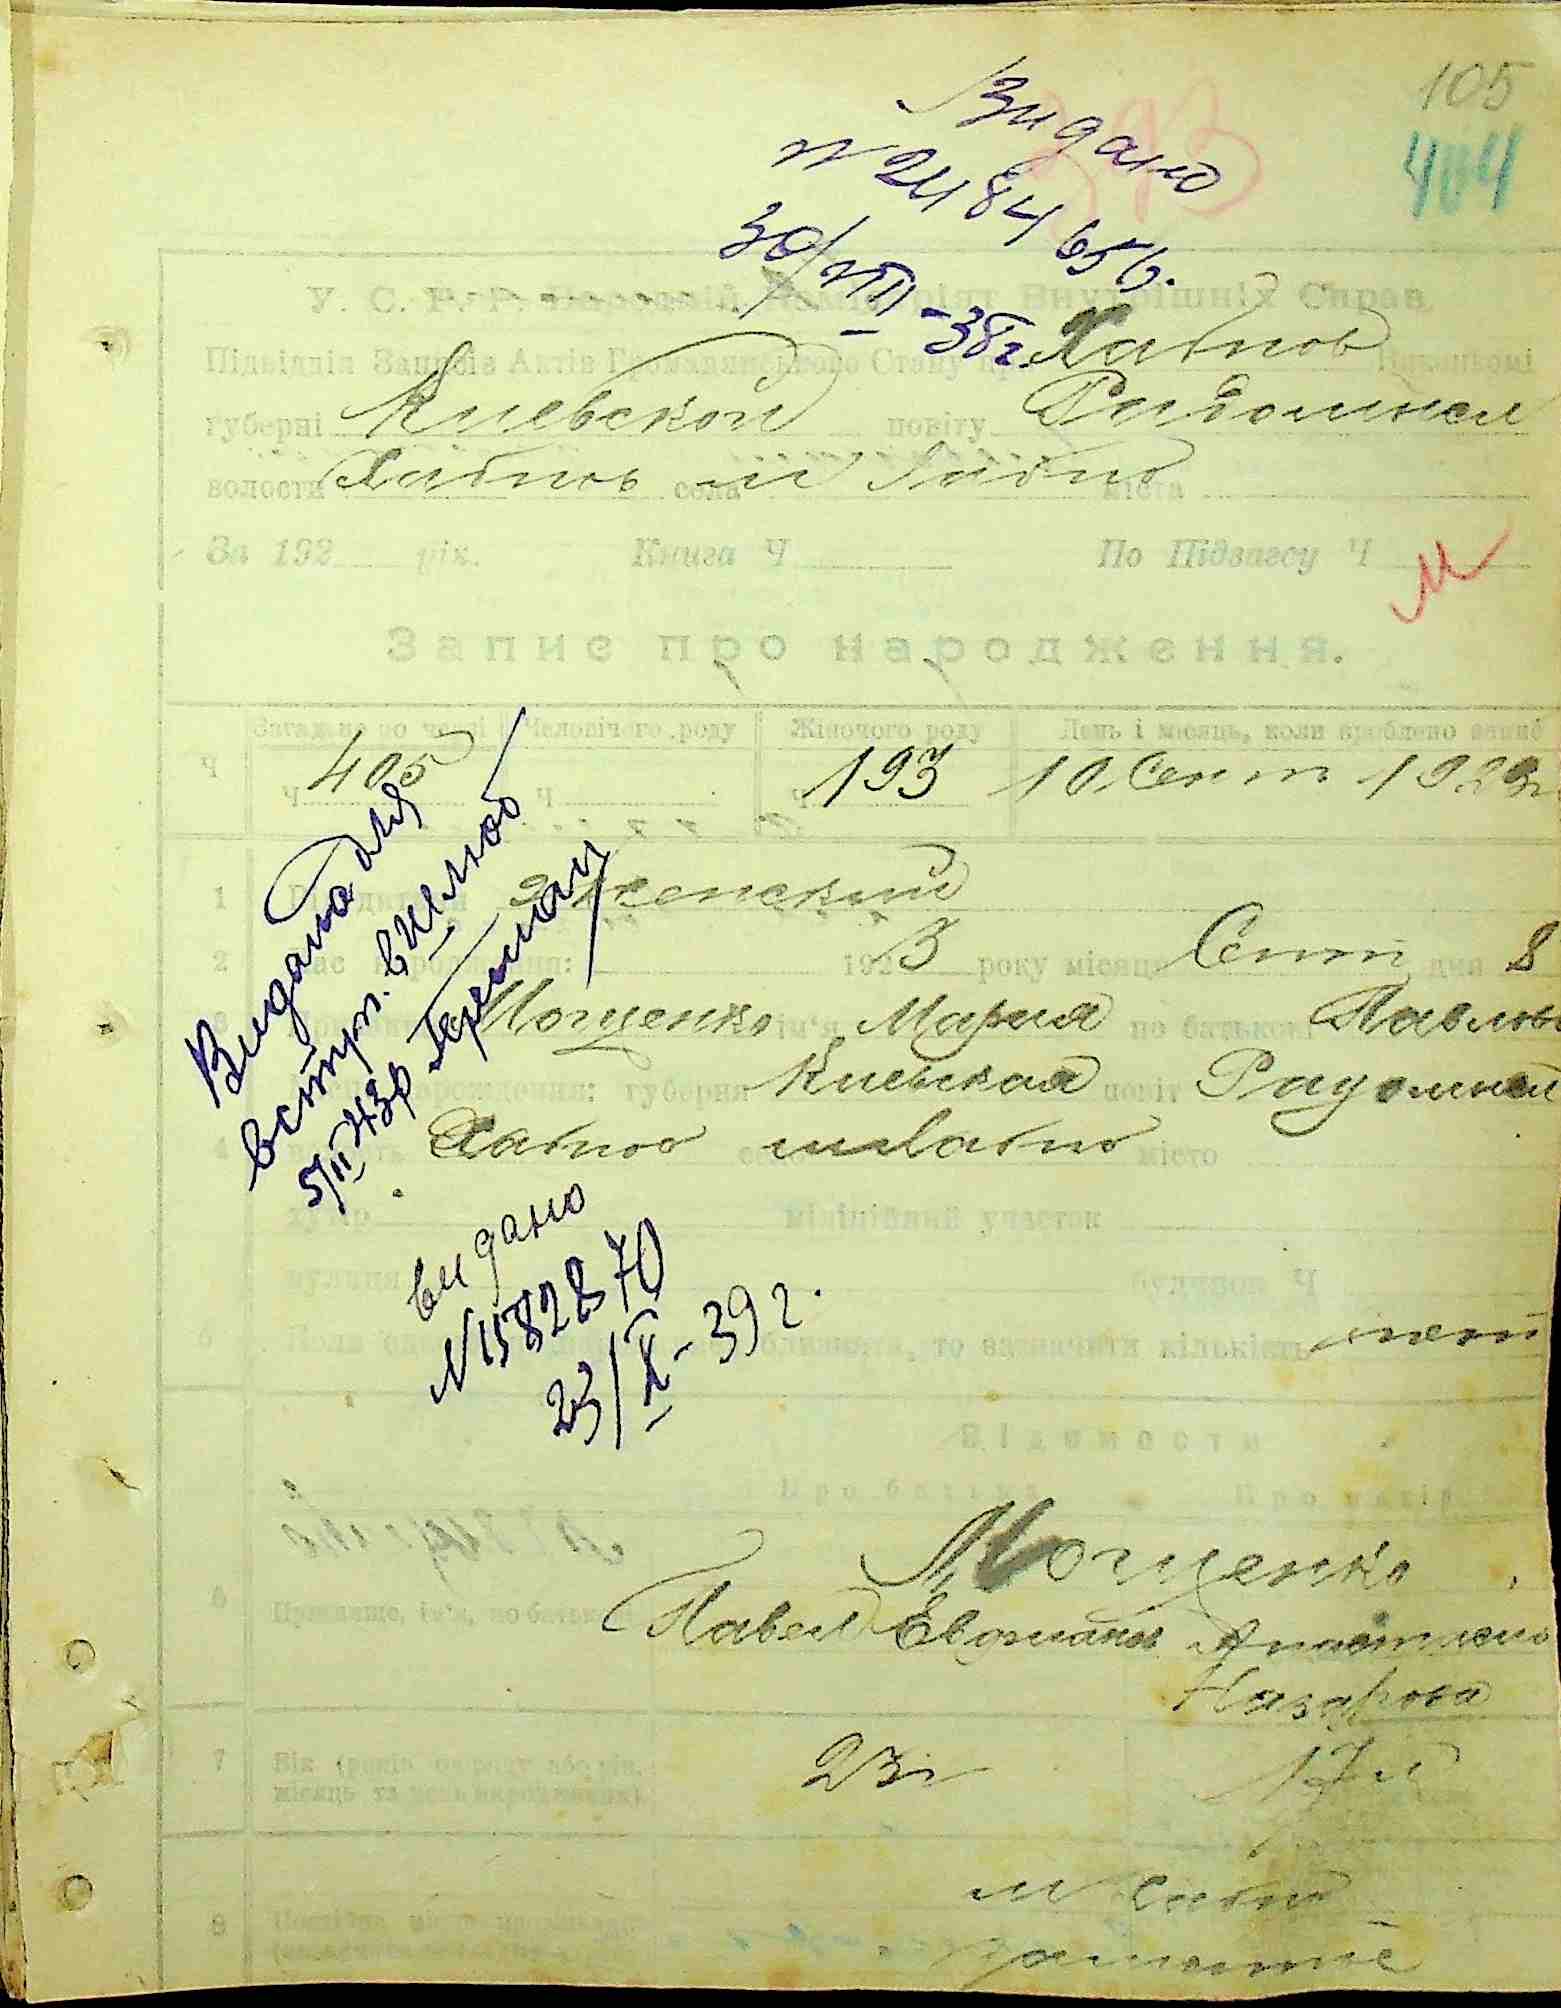 105
404
393
Видано
N 248465б.
30/VIII-38г.
У. С. Р. Р. Народній Комісаріят Внутрішніх Справ
Підвідділ Записів Актів Громадянського Стану при Хабнов Виконкомі
губерні Киевской повіту Радомысл
волости Хабнов села м Хабно міста
За 192 рік. Книга Ч По Підзагсу Ч
М
Запис про народження.
Ч Загальне по числі Чоловічого роду Жіночого роду День і місяць, коли зроблено запис
Ч 405 Ч Ч 193 10 Сент 1923г
1 Женский
2 Час народження: 1923 року місяця Сент дня 8
3 Мощенко ім'я Мария по батькові Павлов
Місце народження: губерня Киевская повіт Радомысл
4 волость Хабнов село м Хабно місто
хутір міліційний участок
вулиця будинок Ч
5 Коли близнята, то зазначити кількість нет
Видано для
вступ. в шлюб
5/II 43р
видано
N 1582870
23/X-39г.
Відомости
Про батька Про матір
Мощенко
6 Прізвище, ім'я, по батькові Павел Анастасия
Назарова
7 Вік (років од роду або рік, місяць та день народження) 23г 17л
8 Постійне місце м Хабно